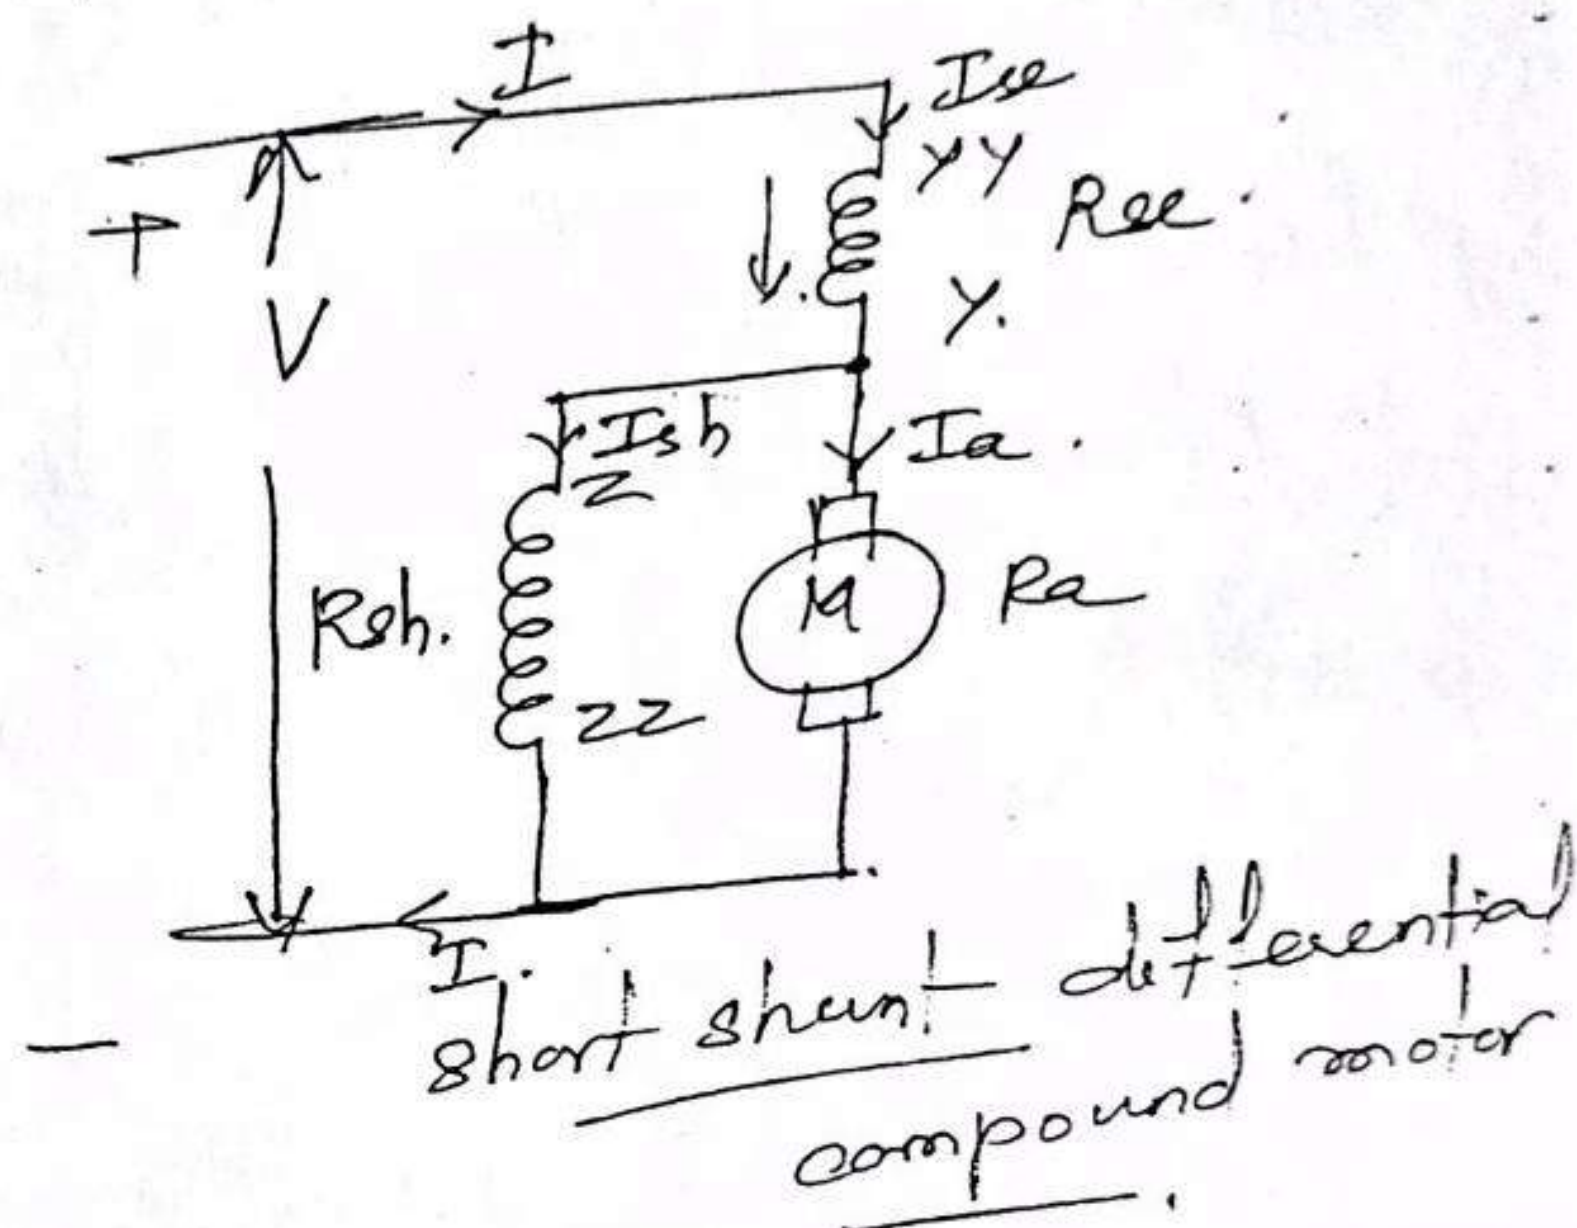 I
Ise
YY
Rse.
+
V
Y.
Ish
Ia.
Z
Rsh.
M
Ra
ZZ
I.
-
short shunt differential
compound motor.